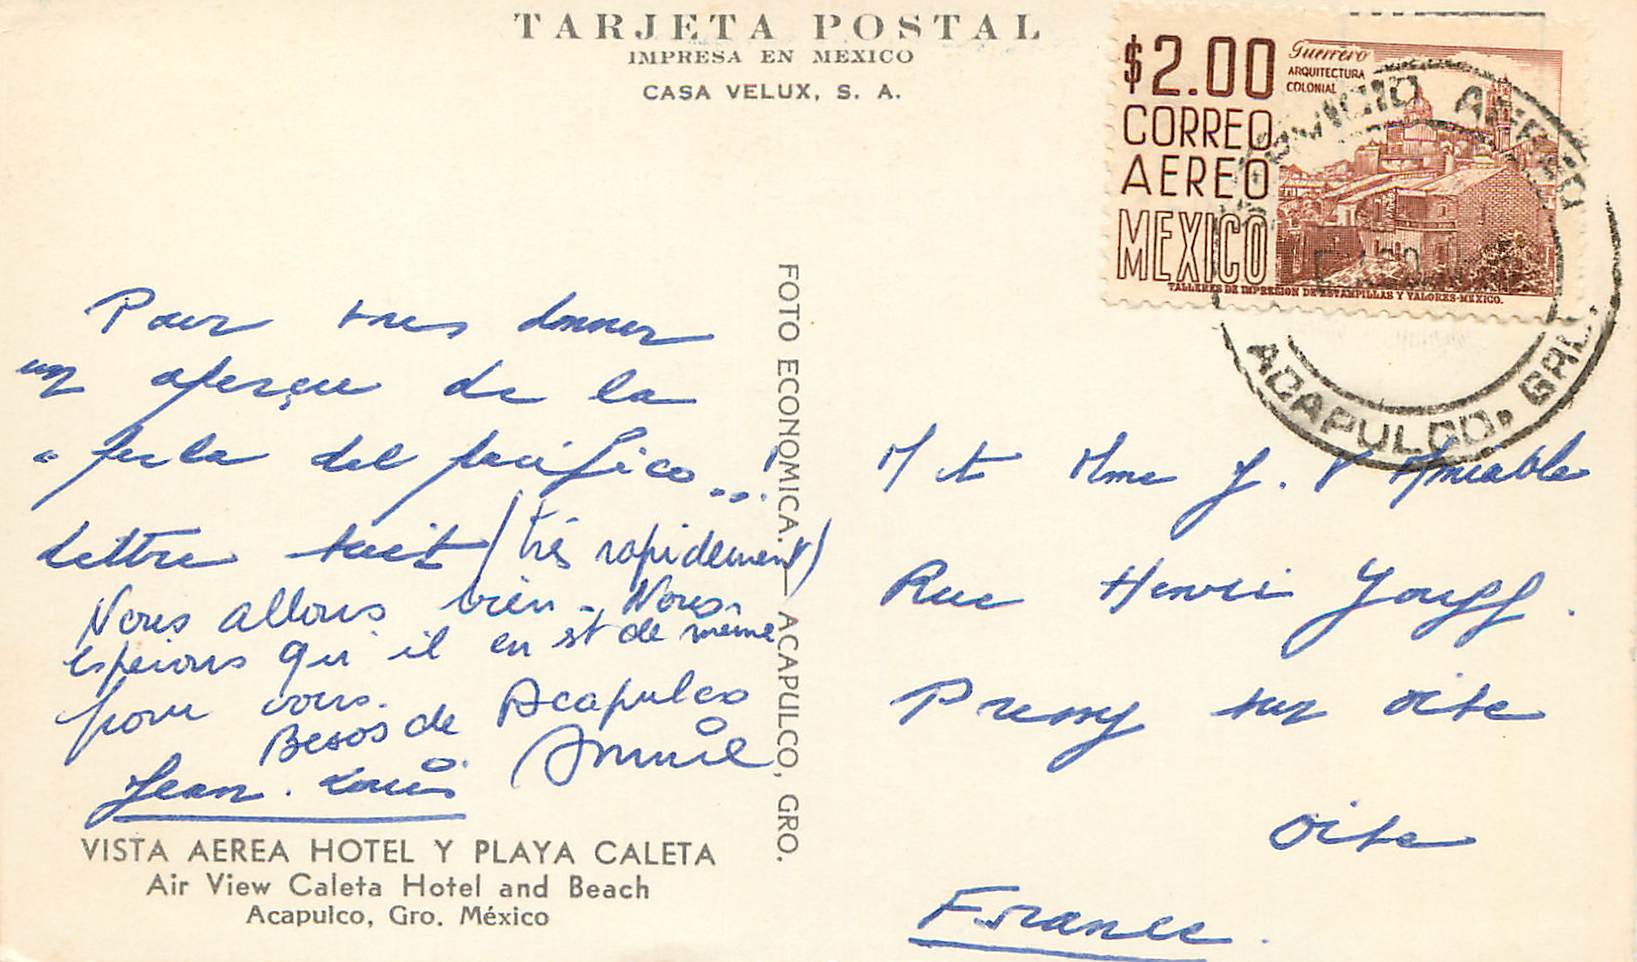 TARJETA POSTAL
IMPRESA EN MEXICO
CASA VELUX, S. A.
$2.00
CORREO
AEREO
MEXICO
Guerrero
ARQUITECTURA
COLONIAL
TALLERES DE IMPRESION DE ESTAMPILLAS Y VALORES-MEXICO.
SERVICIO AEREO
ACAPULCO, GRO.
Pour vous donner
un aperçu de la
"perla del pacifico...!
Lettre suit (très rapidement)
Nous allons bien - Nous
espérons qu'il en st de même
pour vous.
Besos de Acapulco
Jean-Louis Annie
VISTA AEREA HOTEL Y PLAYA CALETA
Air View Caleta Hotel and Beach
Acapulco, Gro. México
FOTO ECONOMICA. — ACAPULCO, GRO.
M et Mme J. Amiable
Rue Henri
sur Oise
Oise
France